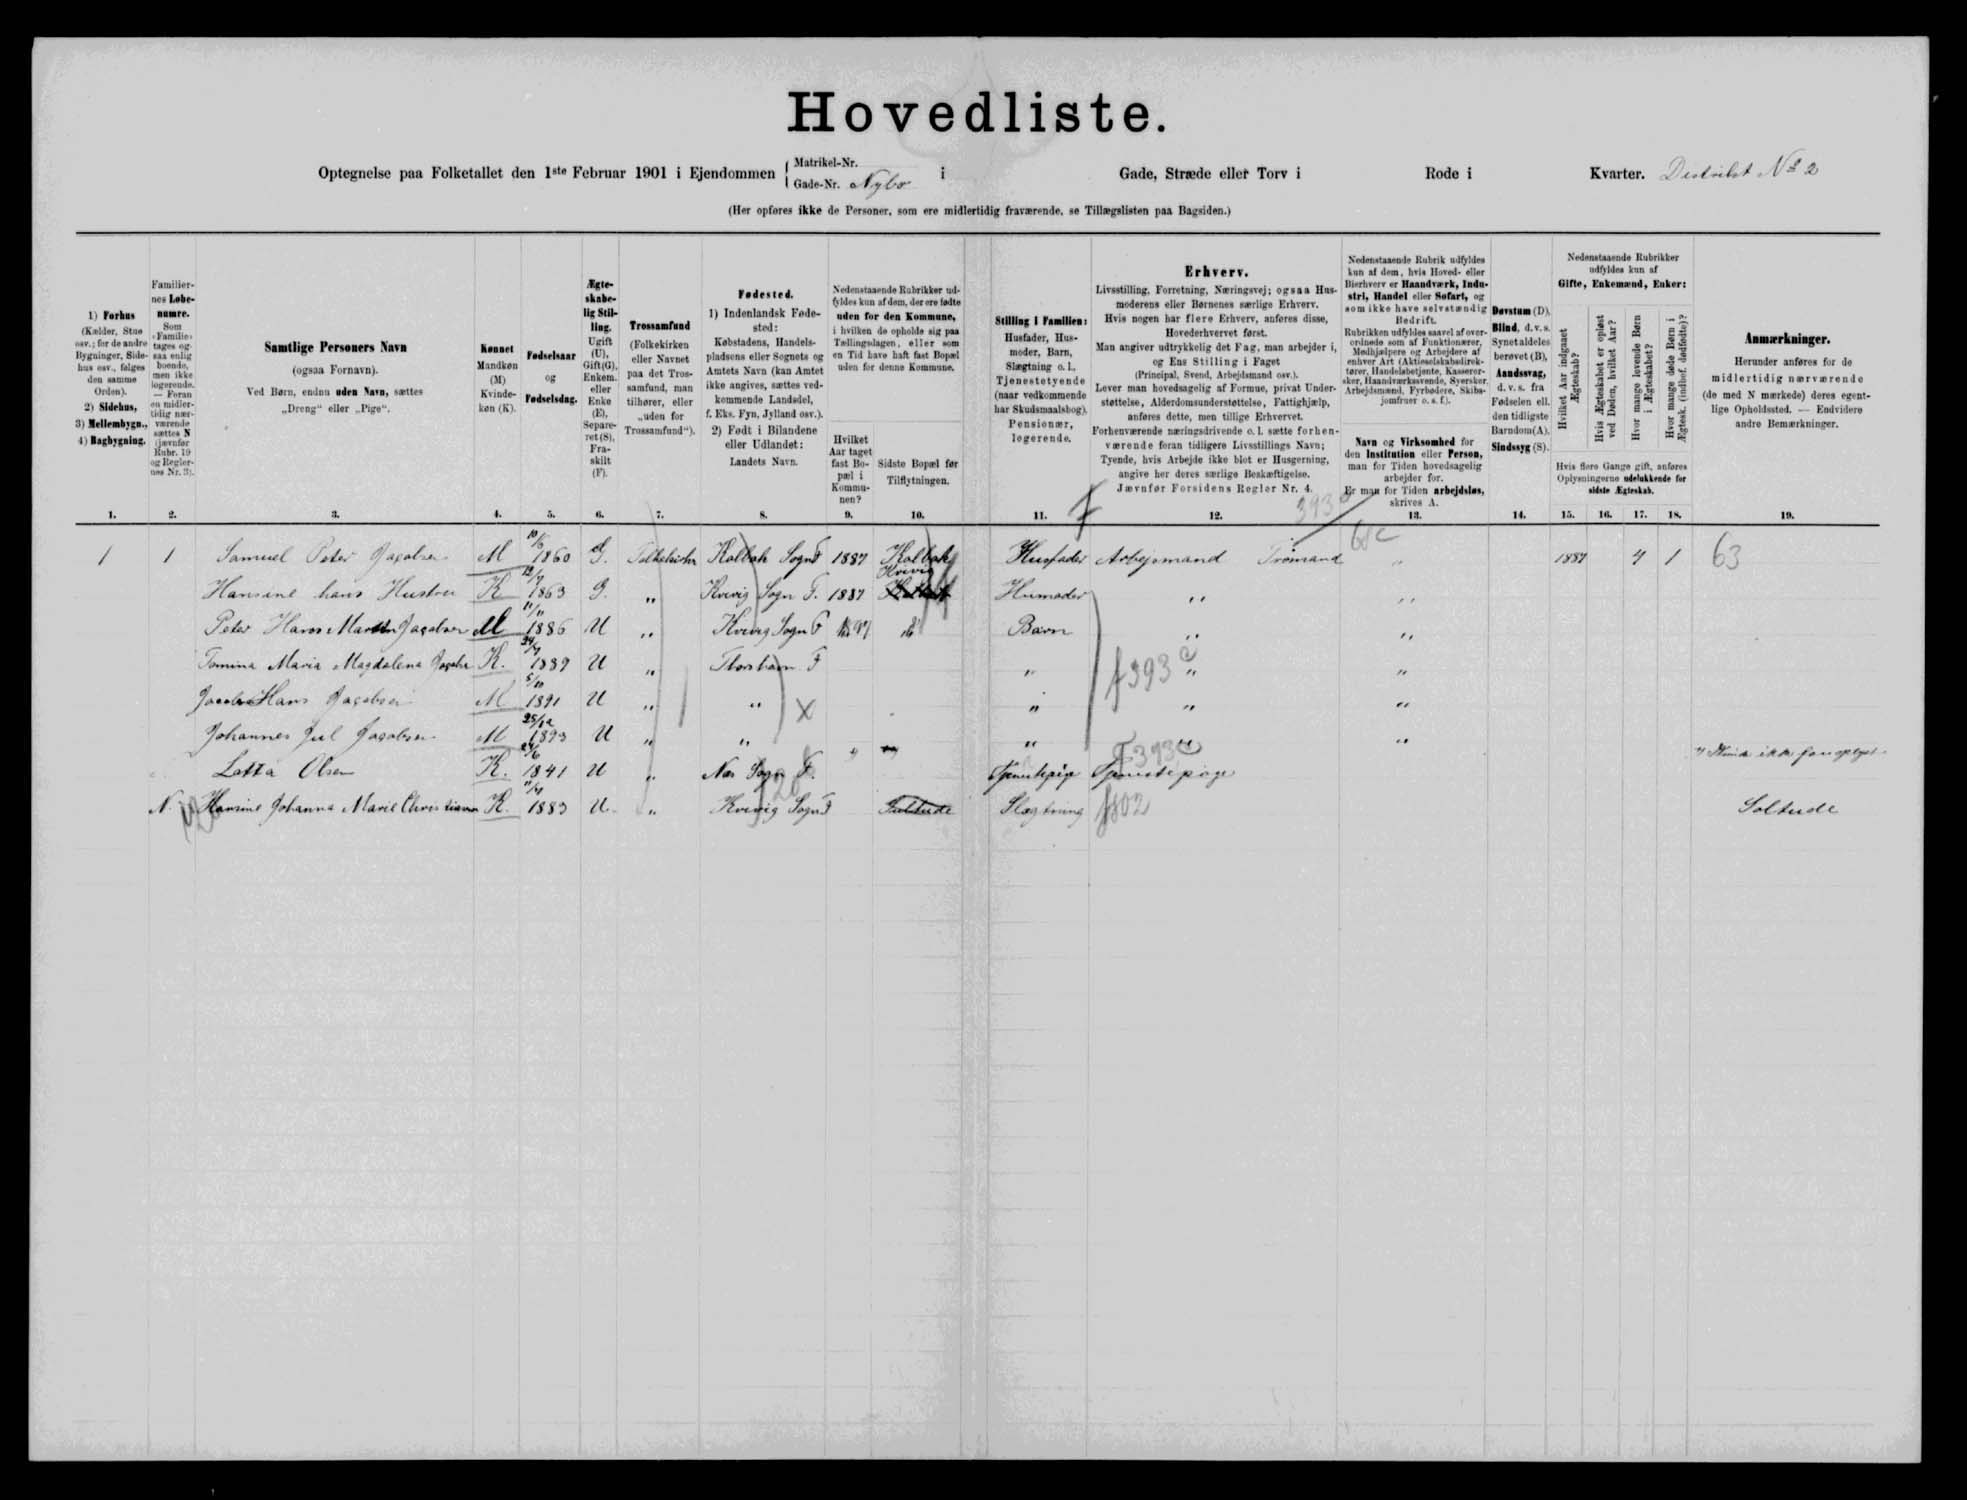 Hovedliste.
Optegnelse paa Folketallet den 1ste Februar 1901 i Ejendommen { Matrikel-Nr. Gade-Nr. Nybo i Gade, Stræde eller Torv i Rode i Kvarter. Distrikt No 2
(Her opføres ikke de Personer, som ere midlertidig fraværende, se Tillægslisten paa Bagsiden.)
1) Forhus
(Kælder, Stue
osv.; for de andre
Bygninger, Side-
hus osv., følges
den samme
Orden).
2) Sidehus,
3) Mellembygn.,
4) Bagbygning.
Familier-
nes Løbe-
numre.
Som
»Familie«
tages og-
saa enlig
boende,
men ikke
logerende.
— Foran
en midler-
tidig nær-
værende
sættes N
(jævnfør
Rubr. 19
og Regler-
nes Nr. 3).
Samtlige Personers Navn
(ogsaa Fornavn).
Ved Børn, endnu uden Navn, sættes
„Dreng“ eller „Pige“.
Kønnet
Mandkøn
(M)
Kvinde-
køn (K).
Fødselsaar
og
Fødselsdag.
Ægte-
skabe-
lig Stil-
ling.
Ugift
(U),
Gift(G),
Enkem.
eller
Enke
(E),
Separe-
ret (S),
Fra-
skilt
(F).
Trossamfund
(Folkekirken
eller Navnet
paa det Tros-
samfund, man
tilhører, eller
„uden for
Trossamfund“).
Fødested.
1) Indenlandsk Føde-
sted:
Købstadens, Handels-
pladsens eller Sognets og
Amtets Navn (kan Amtet
ikke angives, sættes ved-
kommende Landsdel,
f. Eks. Fyn, Jylland osv.).
2) Født i Bilandene
eller Udlandet:
Landets Navn.
Nedenstaaende Rubrikker ud-
fyldes kun af dem, der ere fødte
uden for den Kommune,
i hvilken de opholde sig paa
Tællingsdagen, eller som
en Tid have haft fast Bopæl
uden for denne Kommune.
Hvilket
Aar taget
fast Bo-
pæl i
Kommu-
nen?
Sidste Bopæl før
Tilflytningen.
Stilling i Familien:
Husfader, Hus-
moder, Barn,
Slægtning o. l.,
Tjenestetyende
(naar vedkommende
har Skudsmaalsbog),
Pensionær,
logerende.
Erhverv.
Livsstilling, Forretning, Næringsvej; ogsaa Hus-
moderens eller Børnenes særlige Erhverv.
Hvis nogen har flere Erhverv, anføres disse,
Hovederhvervet først.
Man angiver udtrykkelig det Fag, man arbejder i,
og Ens Stilling i Faget
(Principal, Svend, Arbejdsmand osv.).
Lever man hovedsagelig af Formue, privat Under-
støttelse, Alderdomsunderstøttelse, Fattighjælp,
anføres dette, men tillige Erhvervet.
Forhenværende næringsdrivende o. l. sætte forhen-
værende foran tidligere Livsstillings Navn;
Tyende, hvis Arbejde ikke blot er Husgerning,
angive her deres særlige Beskæftigelse.
Jævnfør Forsidens Regler Nr. 4.
Nedenstaaende Rubrik udfyldes
kun af dem, hvis Hoved- eller
Bierhverv er Haandværk, Indu-
stri, Handel eller Søfart, og
som ikke have selvstændig
Bedrift.
Rubrikken udfyldes saavel af over-
ordnede som af Funktionærer,
Medhjælpere og Arbejdere af
enhver Art (Aktieselskabsdirek-
tører, Handelsbetjente, Kasserer-
sker, Haandværkssvende, Syersker,
Arbejdsmænd, Fyrbødere, Skibs-
jomfruer o. s. f.).
Navn og Virksomhed for
den Institution eller Person,
man for Tiden hovedsagelig
arbejder for.
Er man for Tiden arbejdsløs,
skrives A.
Døvstum (D),
Blind, d. v. s.
Synet aldeles
berøvet (B),
Aandssvag,
d. v. s. fra
Fødselen ell.
den tidligste
Barndom(A).
Sindssyg (S).
Nedenstaaende Rubrikker
udfyldes kun af
Gifte, Enkemænd, Enker:
Hvilket Aar indgaaet
Ægteskab?
Hvis Ægteskabet er opløst
ved Døden, hvilket Aar?
Hvor mange levende Børn
i Ægteskabet?
Hvor mange døde Børn i
Ægtesk. (indbef. dødfødte)?
Hvis flere Gange gift, anføres
Oplysningerne udelukkende for
sidste Ægteskab.
Anmærkninger.
Herunder anføres for de
midlertidig nærværende
(de med N mærkede) deres egent-
lige Opholdssted. — Endvidere
andre Bemærkninger.
1. 2. 3. 4. 5. 6. 7. 8. 9. 10. 11. 12. 13. 14. 15. 16. 17. 18. 19.
393 c
1 1 Samuel Peter Jacobsen M 10/6 1860 G. Folkekirken Kolbak Sogn F 1887 Kolbak Husfader Arbejsmand 61c " 1887 4 1 63
Hansine hans Hustru K 12/7 1863 G. " Kvivig Sogn F. 1887 Kvivig Husmoder " "
Peter Hans Martin Jacobsen M 11/11 1886 U " Kvivig Sogn F " Barn " "
Tomina Maria Magdalena K. 1889 U " Thorshavn F " f 393 c " "
Hans Jacobsen M 5/10 1891 U " " X " " "
Johannes Jul Jacobsen M 25/12 1893 U " " " F 393 c "
Lotta Olsen K. 24/6 1841 U " Næs Sogn F. " Tjenestepige Tjenestepige
N. Hansine Johanna Marie Christiansen K. 1883 U. " Kvivig Sogn F Slægtning f802 Soltude